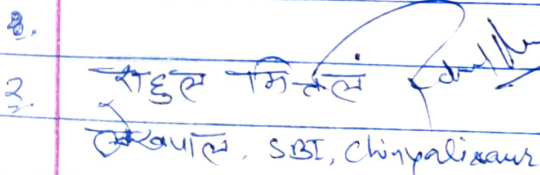 8.
2. राहुल मित्तल
लेखपाल, SBI, Chinyalisaur